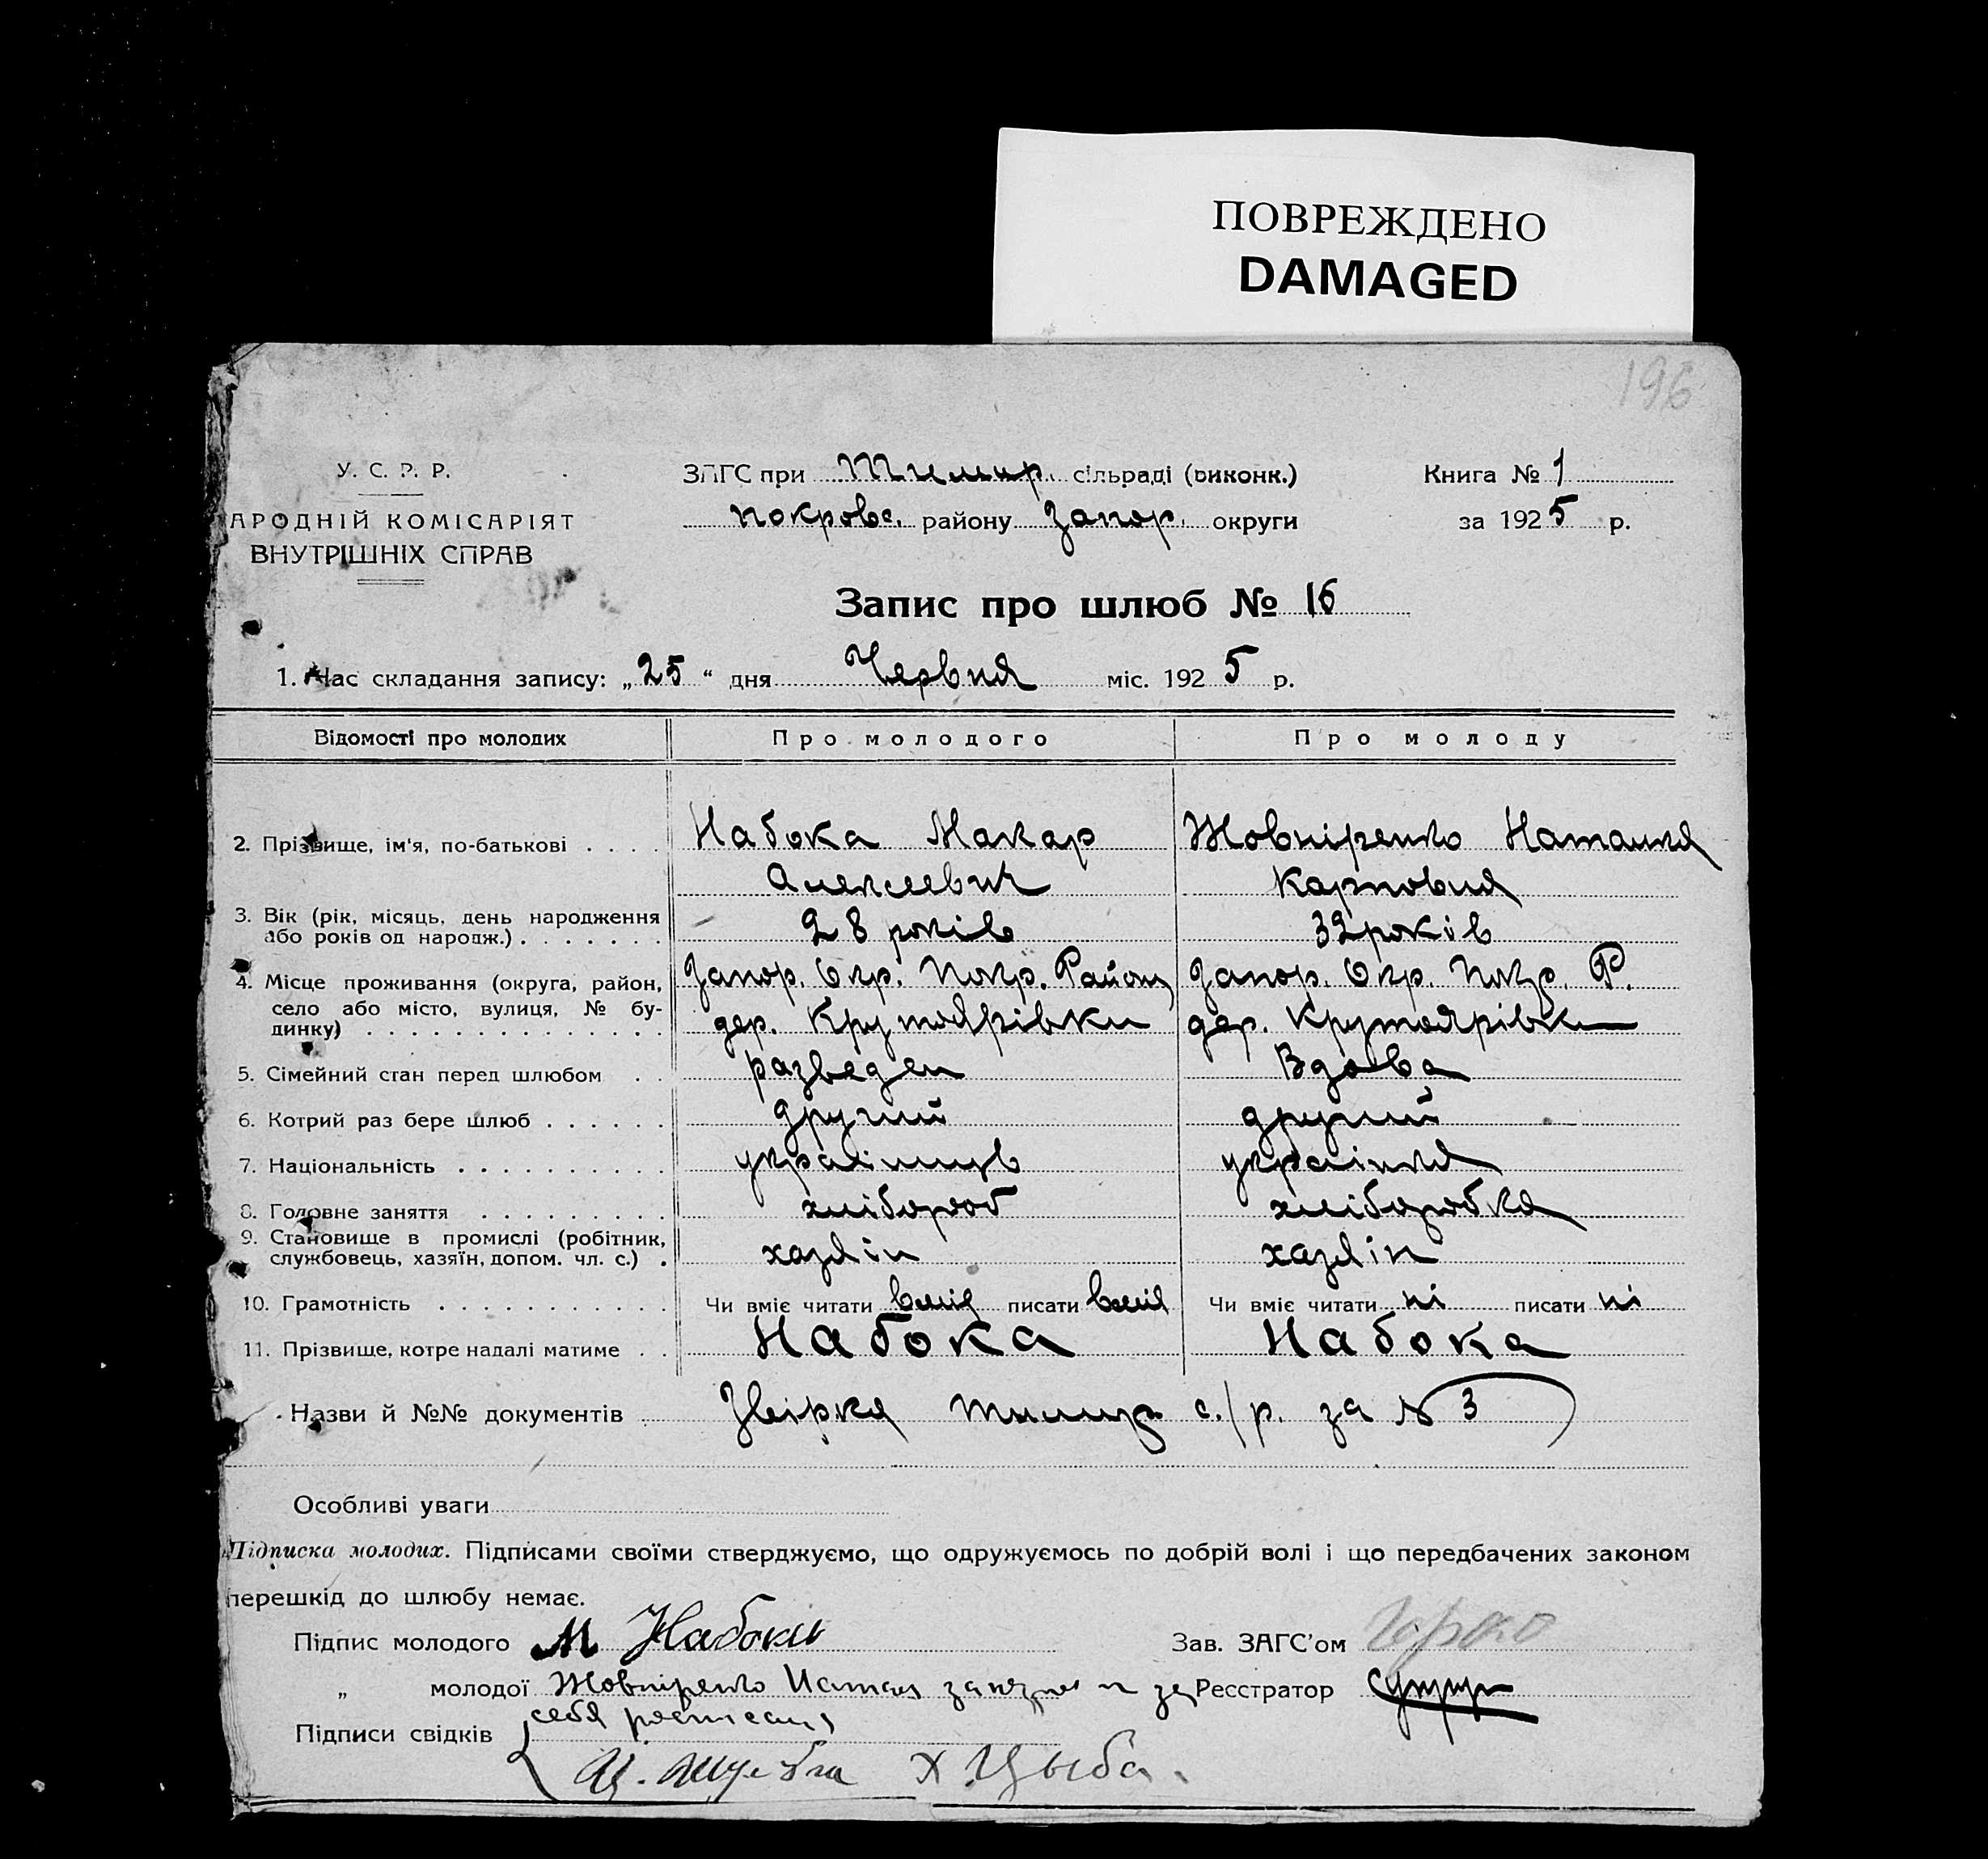 ПОВРЕЖДЕНО
DAMAGED
196
У. С. Р. Р.
АРОДНІЙ КОМІСАРІЯТ
ВНУТРІШНІХ СПРАВ
ЗАГС при Тимир. сільраді (виконк.)
покровс. району Запор. округи
Книга № 1
за 1925 р.
Запис про шлюб № 16
1. Час складання запису: „25“ дня Червня міс. 1925 р.
Відомості про молодих Про молодого Про молоду
2. Прізвище, ім'я, по-батькові . . . . Набока Макар Жовніренко Наталия
Алексеевич Карповна
3. Вік (рік, місяць, день народження або років од народж.) . . . . . . . 28 років 32 років
4. Місце проживання (округа, район, Запор. Окр. Покр. Район Запор. Окр. Покр. Р.
село або місто, вулиця, № бу-
динку) . . . . . . . . . . . . . дер. Крутоярівки дер. Крутоярівки
5. Сімейний стан перед шлюбом . . разведен Вдова
6. Котрий раз бере шлюб . . . . . . другий другий
7. Національність . . . . . . . . . . українць українка
8. Головне заняття . . . . . . . . . хлібороб хліборобка
9. Становище в промислі (робітник,
службовець, хазяїн, допом. чл. с.) . хазяін хазяін
10. Грамотність . . . . . . . . . . . Чи вміє читати вмія писати вмія Чи вміє читати ні писати ні
11. Прізвище, котре надалі матиме . . Набока Набока
Назви й №№ документів . Звірка тимир с./р. за № 3
Особливі уваги
Підписка молодих. Підписами своїми стверджуємо, що одружуємось по добрій волі і що передбачених законом
перешкід до шлюбу немає.
Підпис молодого М Набока Зав. ЗАГС'ом
„ молодої Жовніренко Реєстратор
себя
Підписи свідків
Х Цыба.